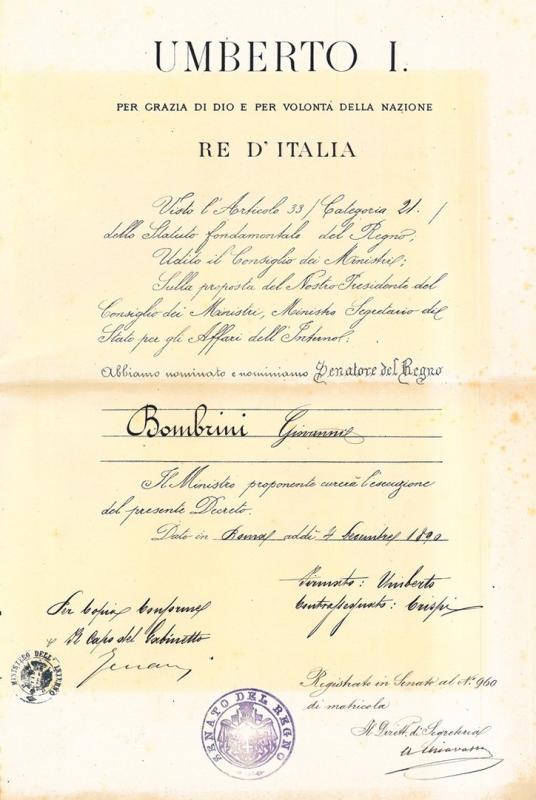 UMBERTO I.
PER GRAZIA DI DIO E PER VOLONTÀ DELLA NAZIONE
RE D'ITALIA
Visto l'Articolo 33 / Categoria 21. /
dello Statuto fondamentale del Regno;
Udito il Consiglio dei Ministri;
Sulla proposta del Nostro Presidente del
Consiglio dei Ministri, Ministro Segretario di
Stato per gli Affari dell'Interno:
Abbiamo nominato e nominiamo Senatore del Regno
Bombrini Giovanni
Il Ministro proponente curerà l'esecuzione
del presente Decreto.
Dato in Roma addì 4 Decembre 1890
Firmato: Umberto
Contrassegnato: Crispi
Per Copia Conforme
Il Capo del Gabinetto
MINISTERO DELL'INTERNO
SENATO DEL REGNO
Registrato in Senato al N.º 960
di matricola
Il Dirett. di Segreteria